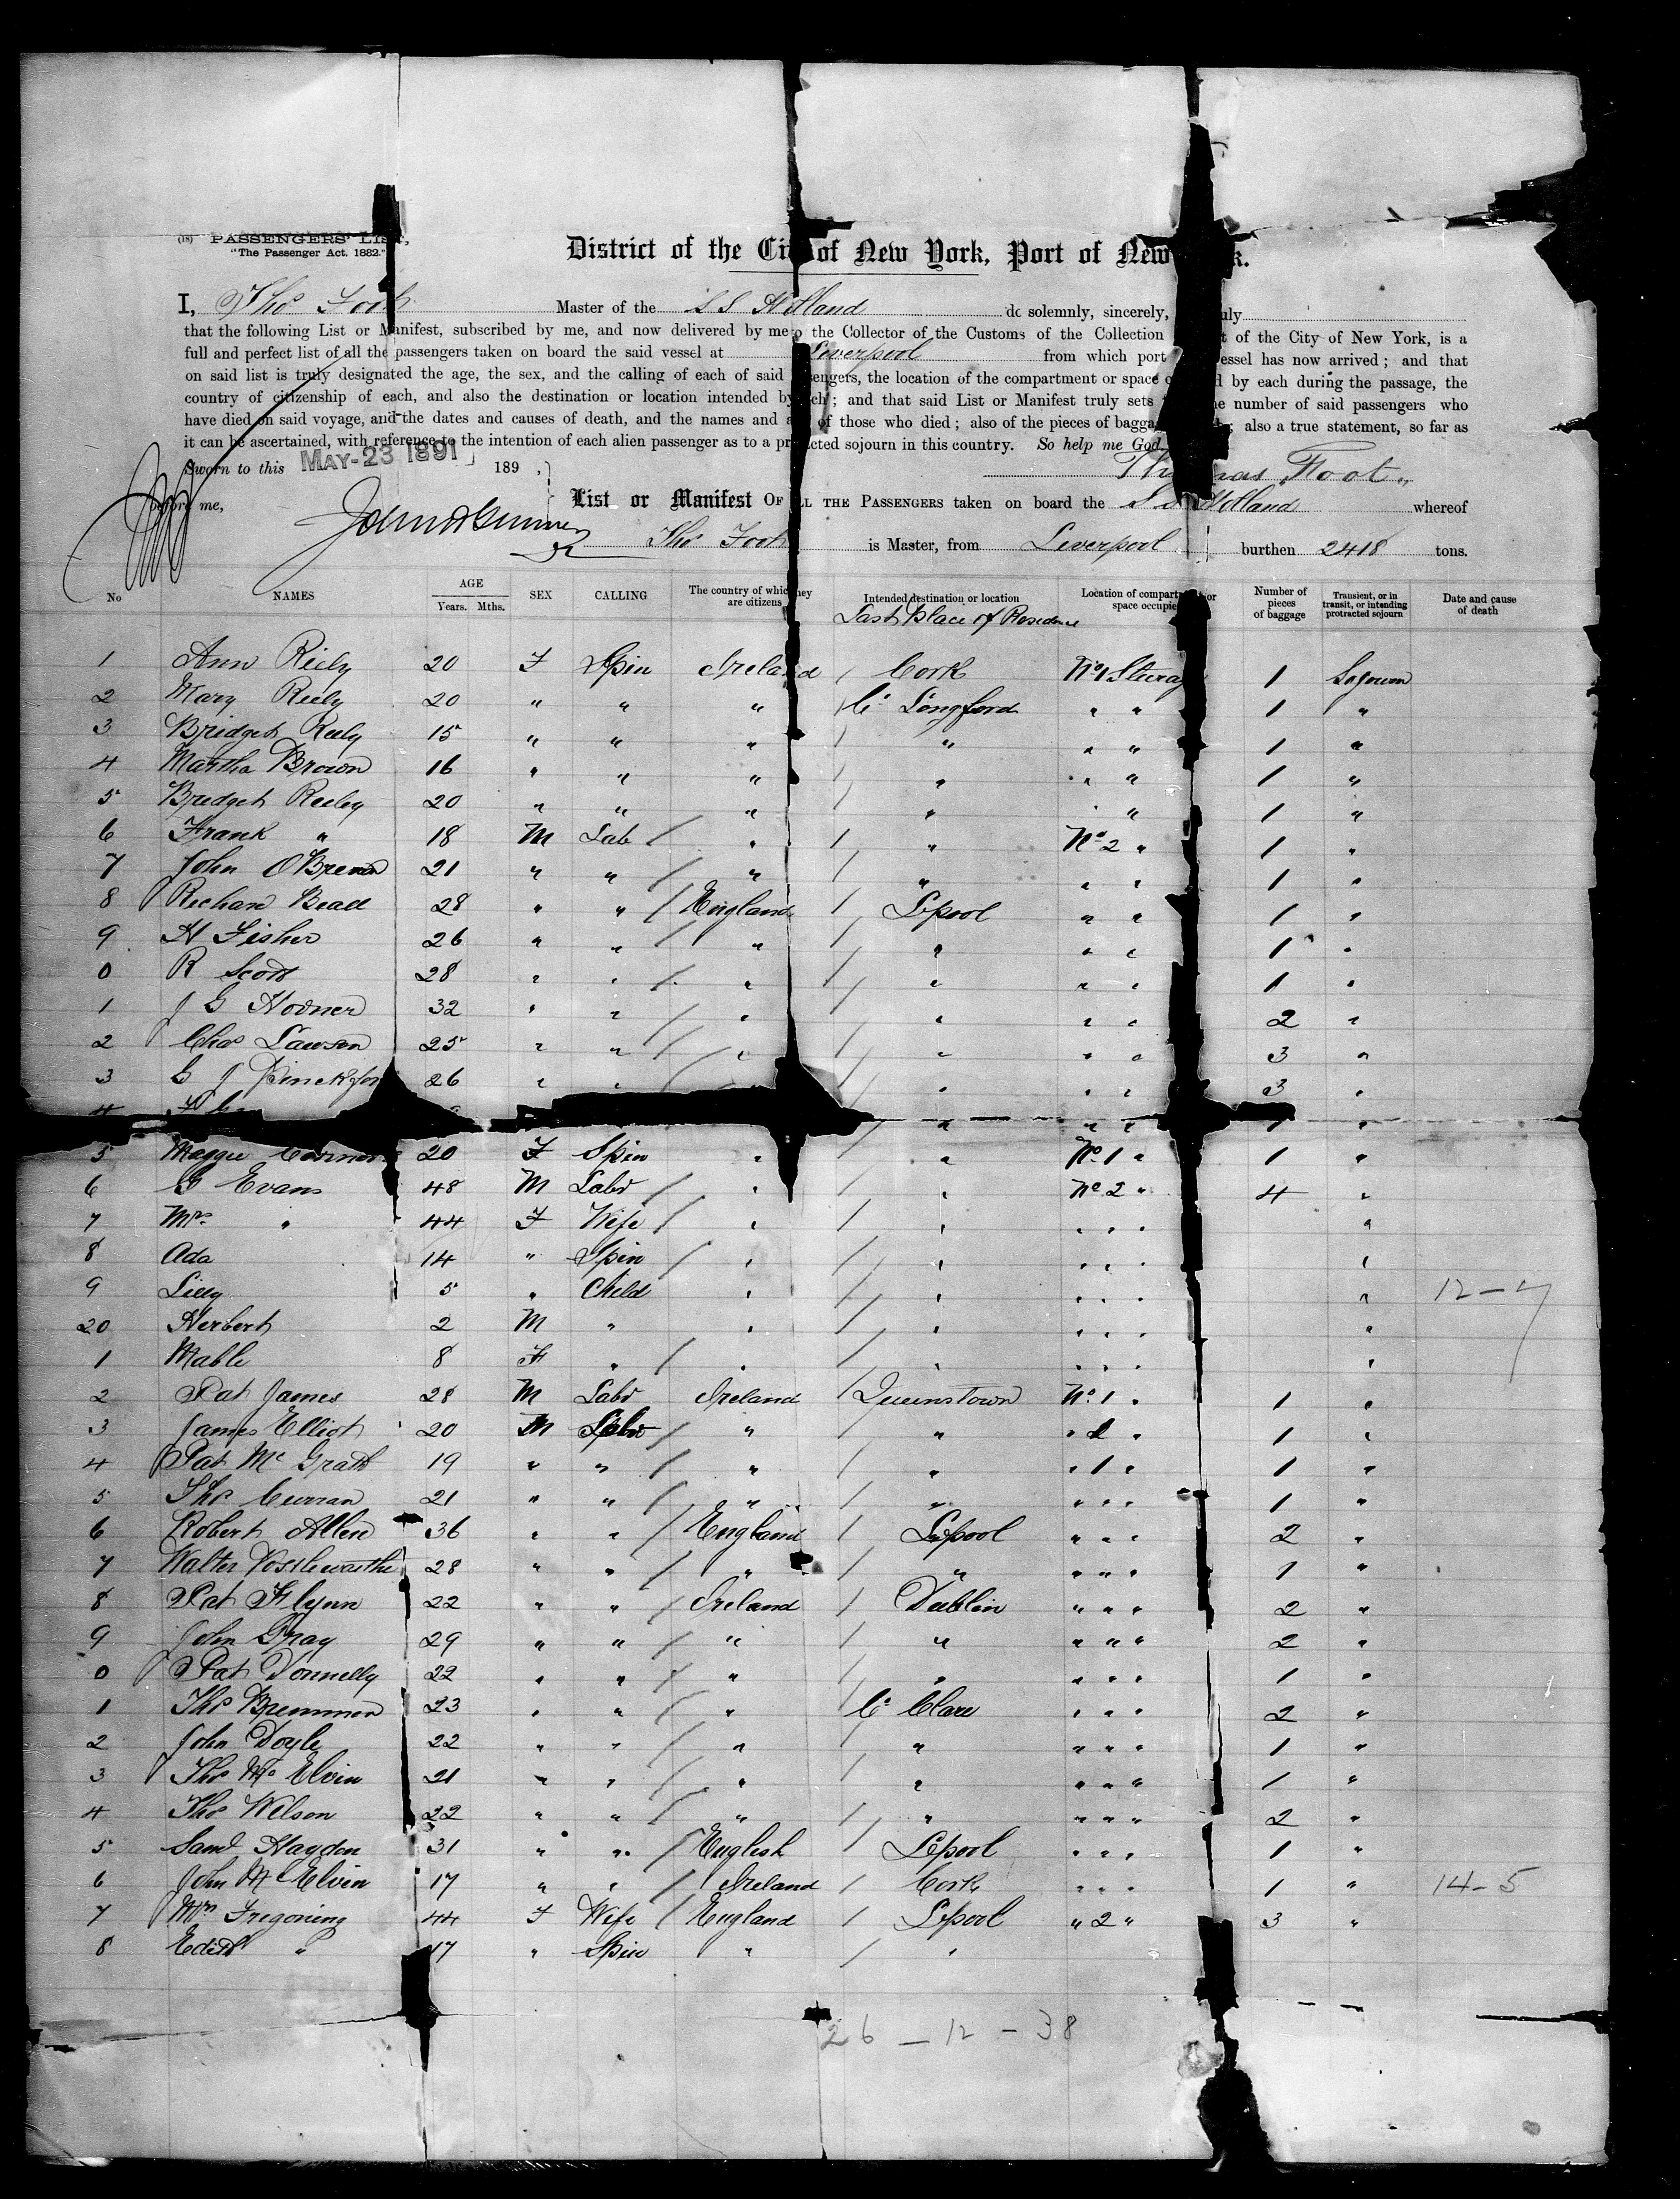 (18) PASSENGERS' LIST,
"The Passenger Act. 1882."
District of the Ci of New York, Port of New k.
I, Thos Foot Master of the S S Holland do solemnly, sincerely, uly
that the following List or Manifest, subscribed by me, and now delivered by me to the Collector of the Customs of the Collection t of the City of New York, is a
full and perfect list of all the passengers taken on board the said vessel at Liverpool from which port essel has now arrived; and that
on said list is truly designated the age, the sex, and the calling of each of said sengers, the location of the compartment or space d by each during the passage, the
country of citizenship of each, and also the destination or location intended by ch; and that said List or Manifest truly sets e number of said passengers who
have died on said voyage, and the dates and causes of death, and the names and a of those who died; also of the pieces of bagga ; also a true statement, so far as
it can be ascertained, with reference to the intention of each alien passenger as to a pr cted sojourn in this country. So help me God
Sworn to this MAY-23 1891 189 ,
Thomas Foot
before me,
List or Manifest OF ALL THE PASSENGERS taken on board the S S Holland whereof
Thos Foot is Master, from Liverpool burthen 2418 tons.
No NAMES AGE Years. Mths. SEX CALLING The country of which they are citizens Intended destination or location Location of compart or space occupie Number of pieces of baggage Transient, or in transit, or intending protracted sojourn Date and cause of death
Last Place of Residence
1 Ann Riely 20 F Spin Ireland / Cork No 1 Steerag 1 Sojourn
2 Mary Riely 20 " " " / Co Longford " " 1 "
3 Bridget Reely 15 " " " / " " " 1 "
4 Martha Brown 16 " " " / " " " 1 "
5 Bridget Reeley 20 " " " / " " " 1 "
6 Frank " 18 M Lab / " / " No 2 " 1 "
7 John OBrena 21 " " / " / " " " 1 "
8 Richard Beall 28 " " / England / Lpool " " 1 "
9 H Fisher 26 " " / " / " " " 1 "
0 R Scott 28 " " / " / " " " 1 "
1 J G Hodner 32 " " / " / " " " 2 "
2 Chas Lawson 25 " " / " / " " " 3 "
3 G J Pinckfor 26 " " / " / " " " 3 "
4 / " " " 1 "
5 Maggie Connor 20 F Spin " / " No 1 " 1 "
6 G Evans 48 M Labr / " / " No 2 " 4 "
7 Mrs " 44 F Wife / " / " " " " "
8 Ada 14 " Spin / " / " " " " "
9 Lilly 5 " Child " / " " " " " 12-7
20 Herbert 2 M " " / " " " " "
1 Mable 8 F " / " / " " " " "
2 Pat James 28 M Labr Ireland / Queenstown No 1 " 1 "
3 James Elliot 20 M Labr / " / " " 2 " 1 "
4 Pat McGrath 19 " " / " / " " 1 " 1 "
5 Thos Curran 21 " " / " / " " " " 1 "
6 Robert Allen 36 " " / England / Lpool " " " 2 "
7 Walter Postlewaithe 28 " " / " / " " " " 1 "
8 Pat Flynn 22 " " / Ireland / Dublin " " " 2 "
9 John Gray 29 " " / " / " " " " 2 "
0 Pat Donnelly 22 " " / " / " " " " 1 "
1 Thos Bremmen 23 " " / " / Co Clare " " " 2 "
2 John Doyle 22 " " / " / " " " " 1 "
3 Thos McElvin 21 " " / " / " " " " 1 "
4 Thos Wilson 22 " " / " / " " " " 2 "
5 Saml Haydon 31 " " / English / Lpool " " " 1 "
6 John McElvin 17 " " / Ireland / Cork " " " 1 " 14-5
7 Mrs Tregoning 44 F Wife / England / Lpool " 2 " 3 "
8 Edith " 17 " Spin " / "
26 - 12 - 38